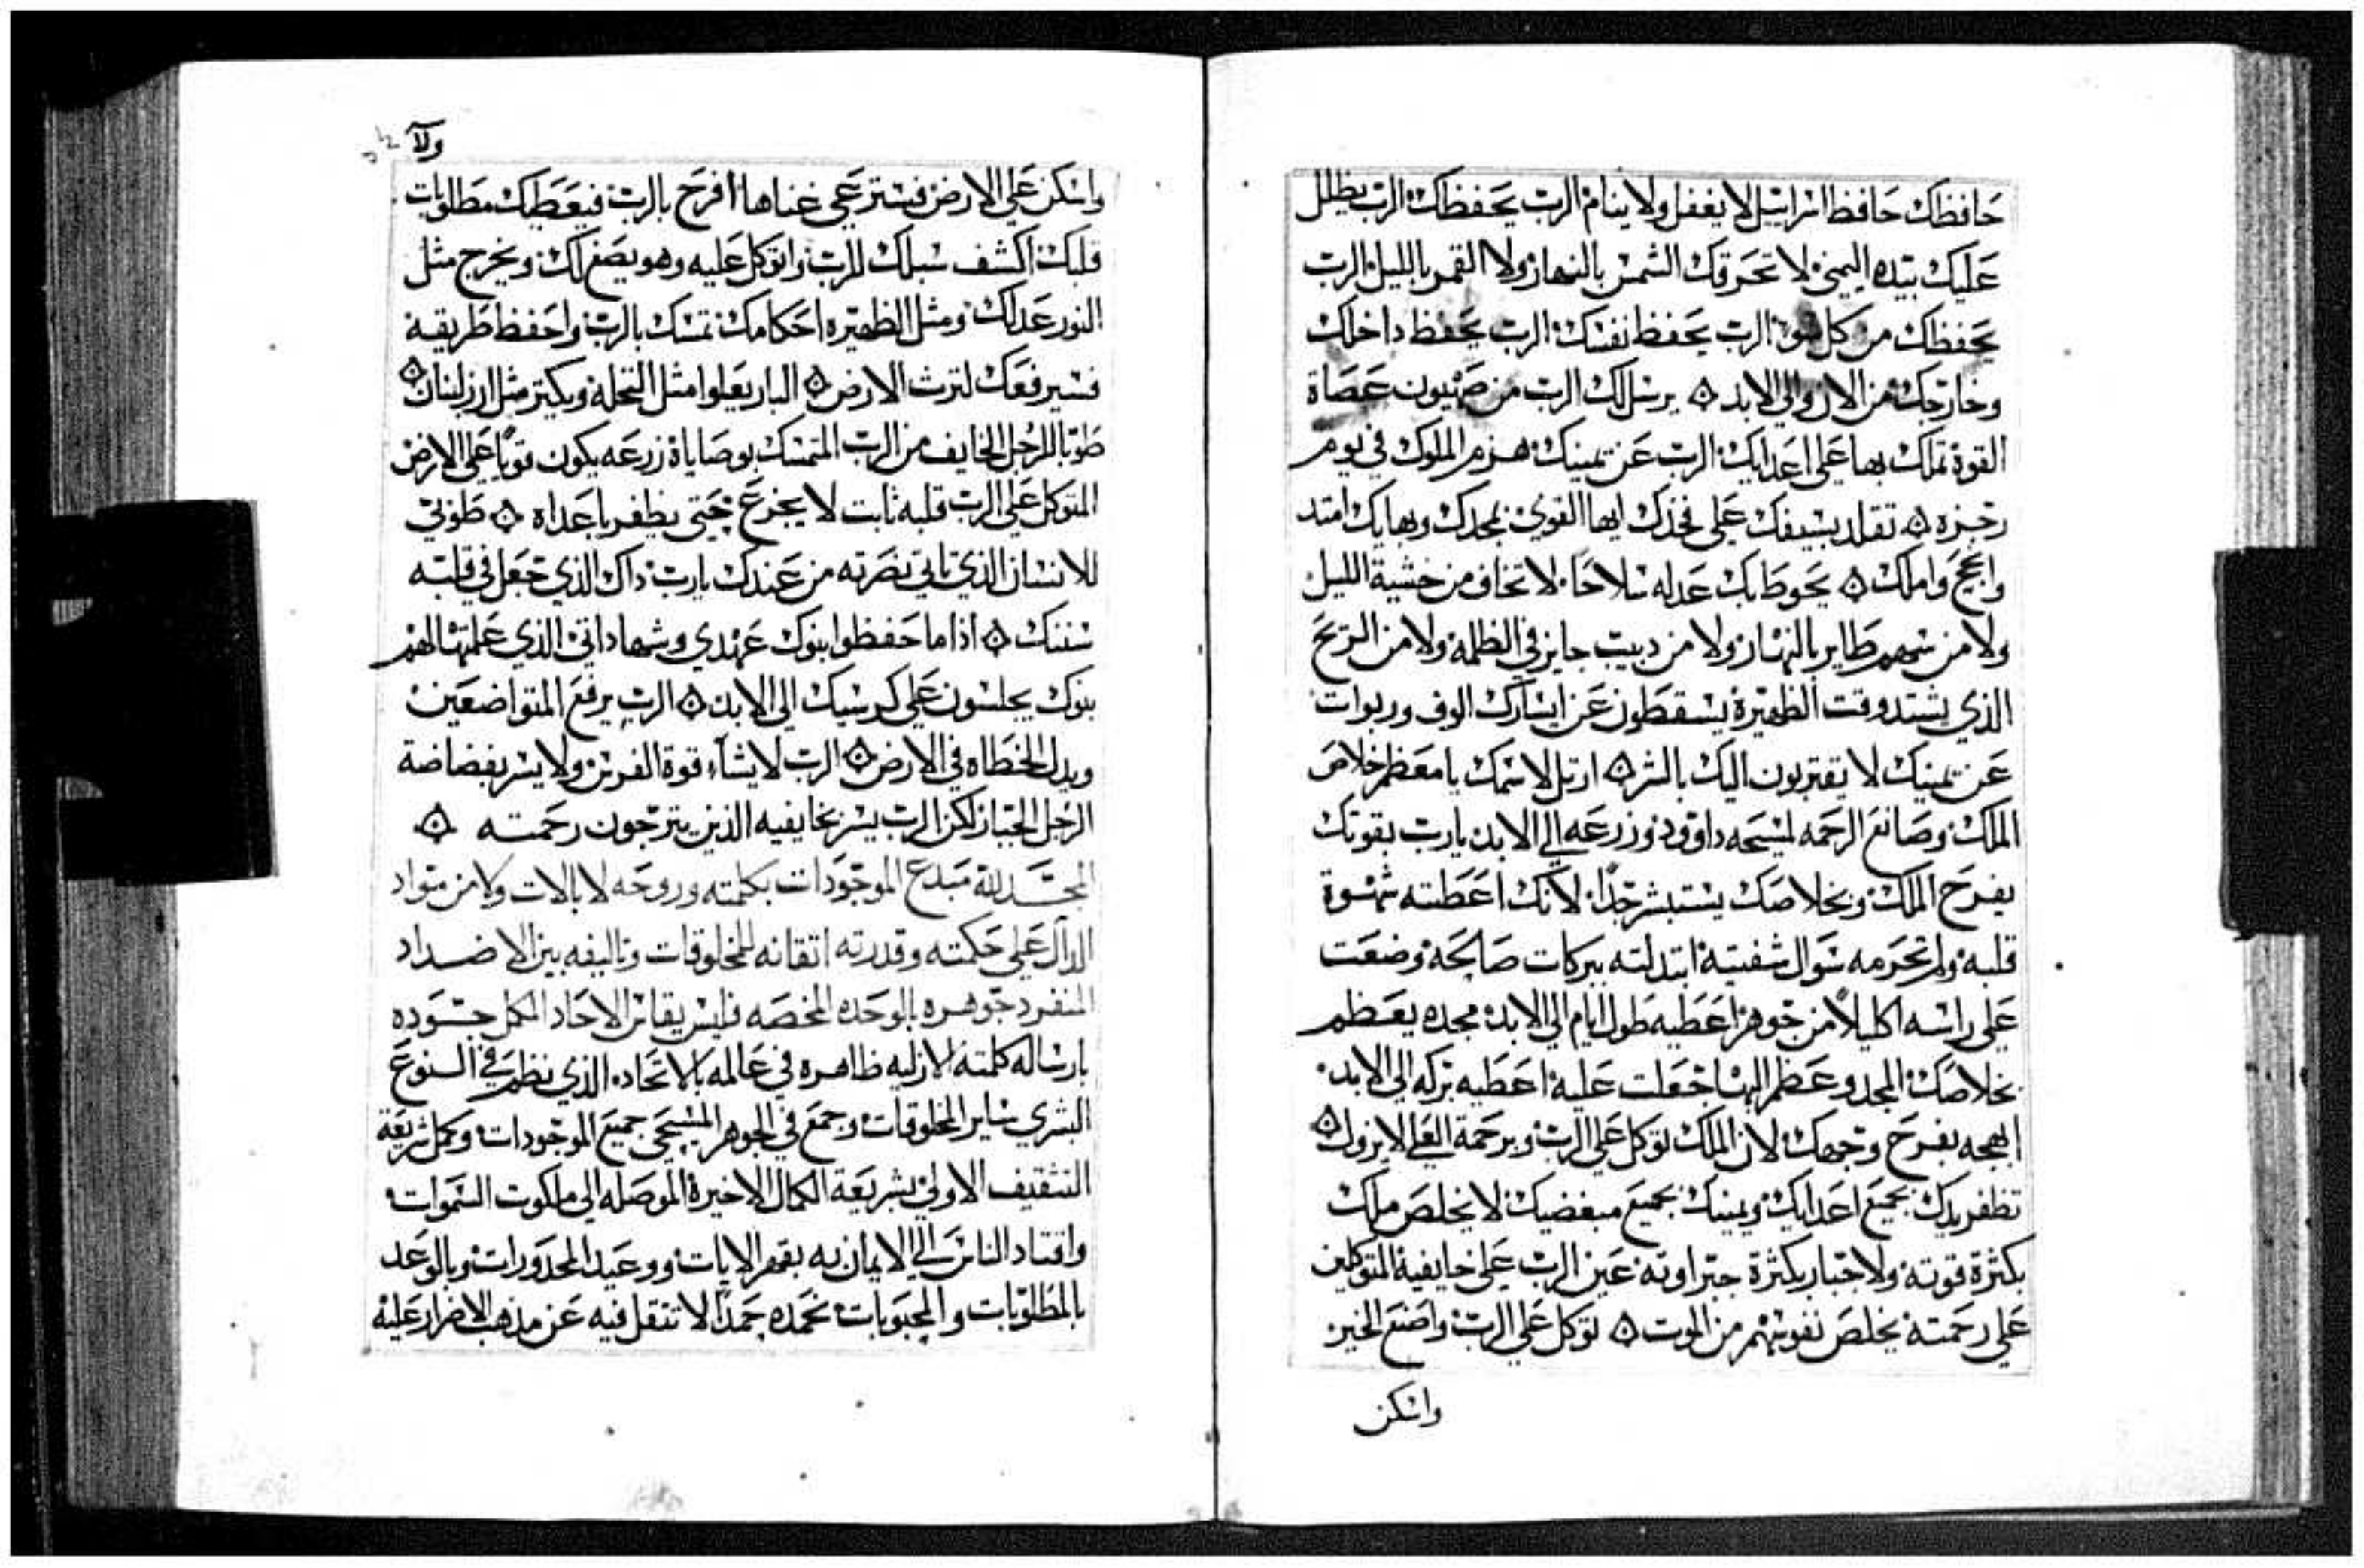 حافظك حافظ اسراييل لا يغفل ولا ينام الرب يحفظك الرب يظلل
عليك بيده اليمني لا تحرقك الشمس بالنهار ولا القمر بالليل الرب
يحفظك من كل سو الرب يحفظ نفسك الرب يحفظ داخلك
وخارجك من الان والي الابد ۞ يرسل لك الرب من صهيون عصاة
القوة تملك بها علي اعدايك الرب عن يمينك هزم الملوك في يوم
رجزه ۞ تقلد بسيفك علي فخذك ايها القوي بمجدك وبهايك امتد
وانجح واملك ۞ يحوط بك عدله سلاحا لا تخاف من خشية الليل
ولا من سهم طاير بالنهار ولا من دبيب جايز في الظلمة ولا من الريح
الذي يشتد وقت الظهيرة يسقطون عن ايسارك الوف وربوات
عن يمينك لا يقتربون اليك بالشر ۞ ارتل لاسمك يا معظم خلاص
الملك وصانع الرحمه لمسيحه داوود وزرعه الي الابد يارب بقوتك
يفرح الملك وبخلاصك يستبشر جدا لانك اعطيته شهوة
قلبه ولم تحرمه سوال شفتيه ابتدلته ببركات صالحة وضعت
علي راسه اكليلا من جوهر اعطيه طول ايام الي الابد مجده يعظم
بخلاصك المجد وعظم البها جعلت عليه اعطيه بركه الي الابد
ابهجه بفرح وجهك لان الملك توكل علي الرب وبرحمة العلي لا يزول ۞
تظفر يدك بجميع اعدايك ويمينك بجميع مبغضيك لا يخلص ملك
بكثرة قوته ولا جبار بكثرة جبراوته عين الرب علي خايفيه المتوكلين
علي رحمته يخلص نفوسهم من الموت ۞ توكل علي الرب واصنع الخير
واسكن
ولا
واسكن علي الارض فسترعي غناها افرح بالرب فيعطيك مطلوبات
قلبك اكشف سبلك للرب واتوكل عليه وهو يصنع لك ويخرج مثل
النور عدلك ومثل الظهيره احكامك تمسك بالرب واحفظ طريقه
فسيرفعك لترث الارض ۞ البار يعلوا مثل النخلة ويكتر مثل ارز لبنان ۞
طوبا للرجل الخايف من الرب المتمسك بوصاياه زرعه يكون قويا علي الارض
المتوكل علي الرب قلبه ثابت لا يجزع حتي يظفر باعداه ۞ طوبي
للانسان الذي تاتي نصرته من عندك يارب داك الذي جعل في قلبه
سننك ۞ اذا ما حفظوا بنوك عهدي وشهاداتي الذي علمتها لهم
بنوك يجلسون علي كرسيك الي الابد ۞ الرب يرفع المتواضعين
ويدل الخطاه في الارض ۞ الرب لا يشاء قوة الفرس ولا يسر بفضاضة
الرجل الجبار لكن الرب يسر بخايفيه الذين يترجون رحمته ۞
المجد لله مبدع الموجودات بكلمته وروحه لا بالات ولا من مواد
الدال علي حكمته وقدرته اتقانه للمخلوقات وتاليفه بين الاضداد
المنفرد جوهره بالوحده المخصه فليس يقاس الاحاد المكمل جوده
بارساله كلمته الازليه ظاهره في عالمه بالاتحاد الذي نظم في النوع
البشري ساير المخلوقات وجمع في الجوهر المسيحي جميع الموجودات وكمل شريعة
التثقيف الاولي بشريعة الكمال الاخيرة الموصله الي ملكوت السموات
واقتاد الناس الي الايمان به بقهر الايات ووعيد المحدورات وبالوعد
بالمطلوبات والمحبوبات نحمده حمدا لا ننتقل فيه عن مذهب الاضرار عليه